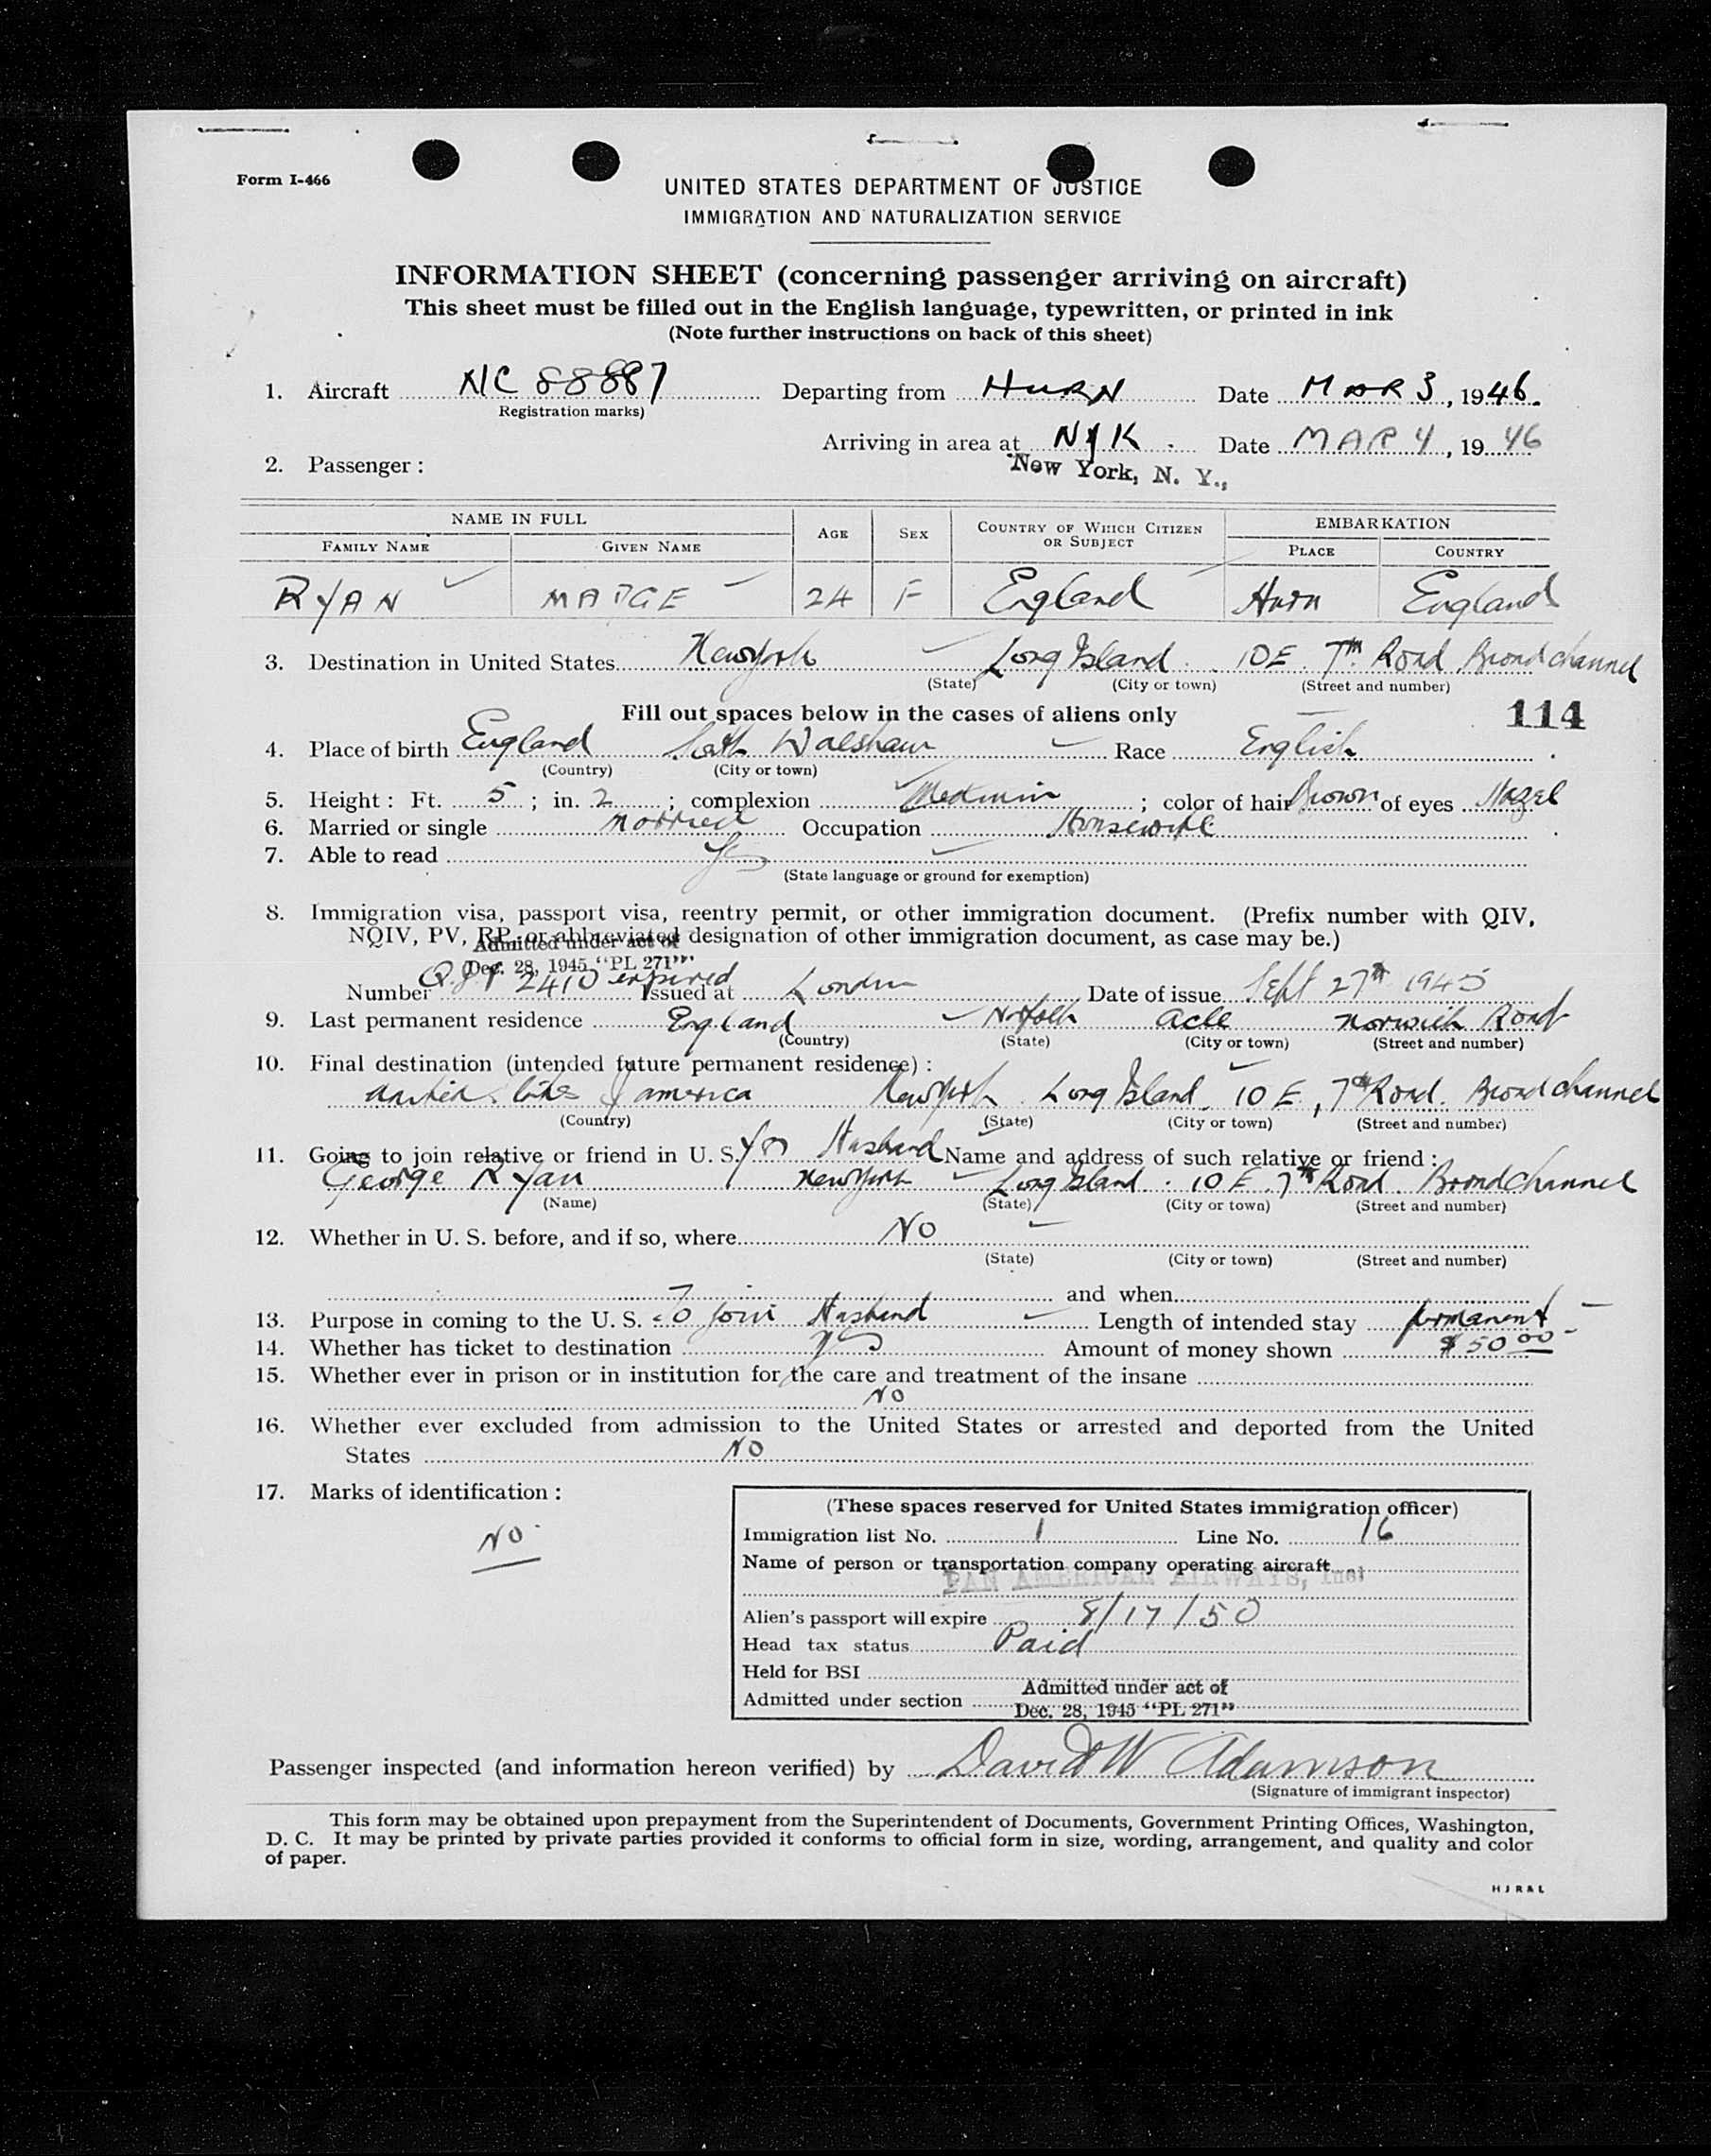 Form I-466
UNITED STATES DEPARTMENT OF JUSTICE
IMMIGRATION AND NATURALIZATION SERVICE
INFORMATION SHEET (concerning passenger arriving on aircraft)
This sheet must be filled out in the English language, typewritten, or printed in ink
(Note further instructions on back of this sheet)
1. Aircraft NC 88887 Departing from HURN Date MAR 3, 1946.
Registration marks)
Arriving in area at NYK Date MAR 4, 19 46
2. Passenger: New York, N. Y.,
NAME IN FULL AGE SEX COUNTRY OF WHICH CITIZEN OR SUBJECT EMBARKATION
FAMILY NAME GIVEN NAME PLACE COUNTRY
RYAN MADGE 24 F England Hurn England
3. Destination in United States New York Long Island 10 E 7th Road Broadchannel
(State) (City or town) (Street and number)
Fill out spaces below in the cases of aliens only 114
4. Place of birth England Walsham Race English
(Country) (City or town)
5. Height: Ft. 5; in. 2; complexion Medium; color of hair Brown of eyes Hazel
6. Married or single Married Occupation Housewife
7. Able to read Yes
(State language or ground for exemption)
8. Immigration visa, passport visa, reentry permit, or other immigration document. (Prefix number with QIV,
NQIV, PV, RP, or abbreviated designation of other immigration document, as case may be.)
Admitted under act of
Dec. 28, 1945 "PL 271"
Number 2410 expired Issued at London Date of issue Sept 27th 1945
9. Last permanent residence England Norfolk Acle Norwich Road
(Country) (State) (City or town) (Street and number)
10. Final destination (intended future permanent residence):
america New York Long Island 10 E, 7th Road. Broadchannel
(Country) (State) (City or town) (Street and number)
11. Going to join relative or friend in U. S. Yes Husband Name and address of such relative or friend:
George Ryan New York Long Island. 10 E 7th Road. Broadchannel
(Name) (State) (City or town) (Street and number)
12. Whether in U. S. before, and if so, where NO
(State) (City or town) (Street and number)
and when
13. Purpose in coming to the U. S. To join Husband Length of intended stay permanent
14. Whether has ticket to destination yes Amount of money shown $50.00
15. Whether ever in prison or in institution for the care and treatment of the insane
NO
16. Whether ever excluded from admission to the United States or arrested and deported from the United
States NO
17. Marks of identification:
NO
(These spaces reserved for United States immigration officer)
Immigration list No. 1 Line No. 16
Name of person or transportation company operating aircraft
PAN AMERICAN AIRWAYS, Inc.
Alien's passport will expire 8/17/50
Head tax status Paid
Held for BSI
Admitted under section Admitted under act of
Dec. 28, 1945 "PL 271"
Passenger inspected (and information hereon verified) by David W Adamson
(Signature of immigrant inspector)
This form may be obtained upon prepayment from the Superintendent of Documents, Government Printing Offices, Washington,
D. C. It may be printed by private parties provided it conforms to official form in size, wording, arrangement, and quality and color
of paper.
HJR&L